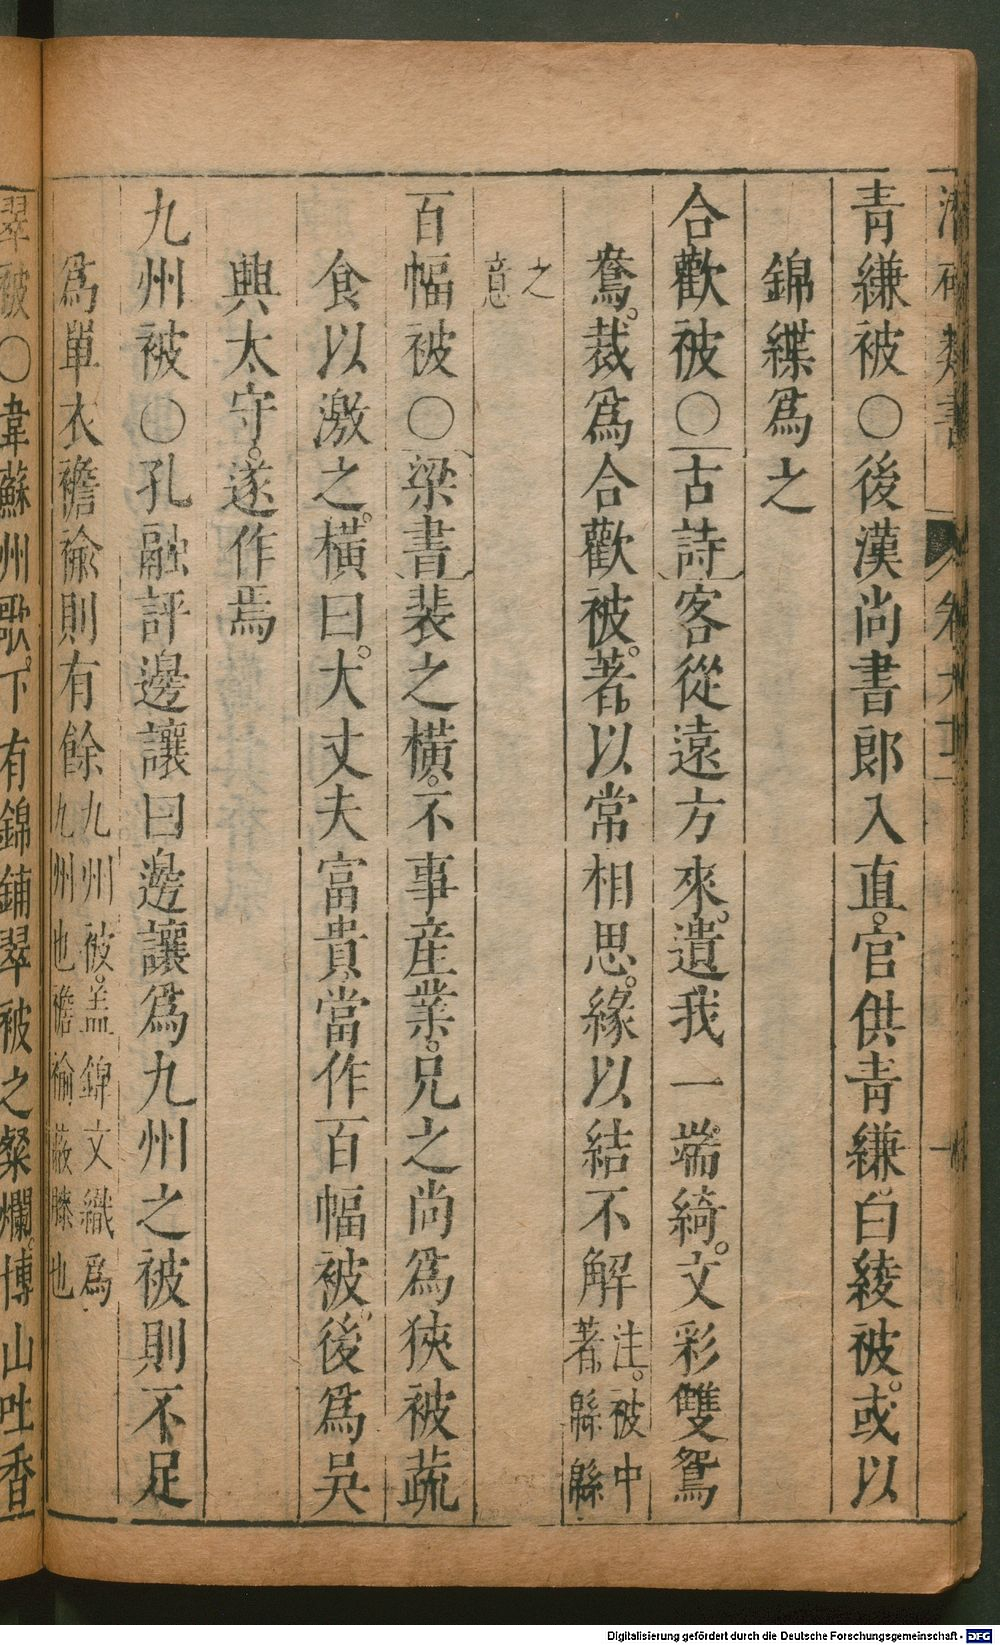 類書
青縑被○後漢尚書郎入直。官供青縑白綾被。或以
錦緤爲之
合歡被○古詩客從遠方來。遺我一端綺。文彩雙鴛
鴦。裁爲合歡被。著以常相思。緣以結不解注。被中著緜緜
之意
百幅被○梁書裴之橫。不事産業。兄之尚爲狹被蔬
食以激之。橫曰。大丈夫富貴。當作百幅被。後爲吳
興太守。遂作焉
九州被○孔融評邊讓曰邊讓爲九州之被則不足
爲單衣襜褕則有餘九州被。盖錦文織爲九州也襜褕蔽膝也
翠被○韋蘇州歌。下有錦鋪翠被之粲爛。博山吐香
Digitalisierung gefördert durch die Deutsche Forschungsgemeinschaft - DFG